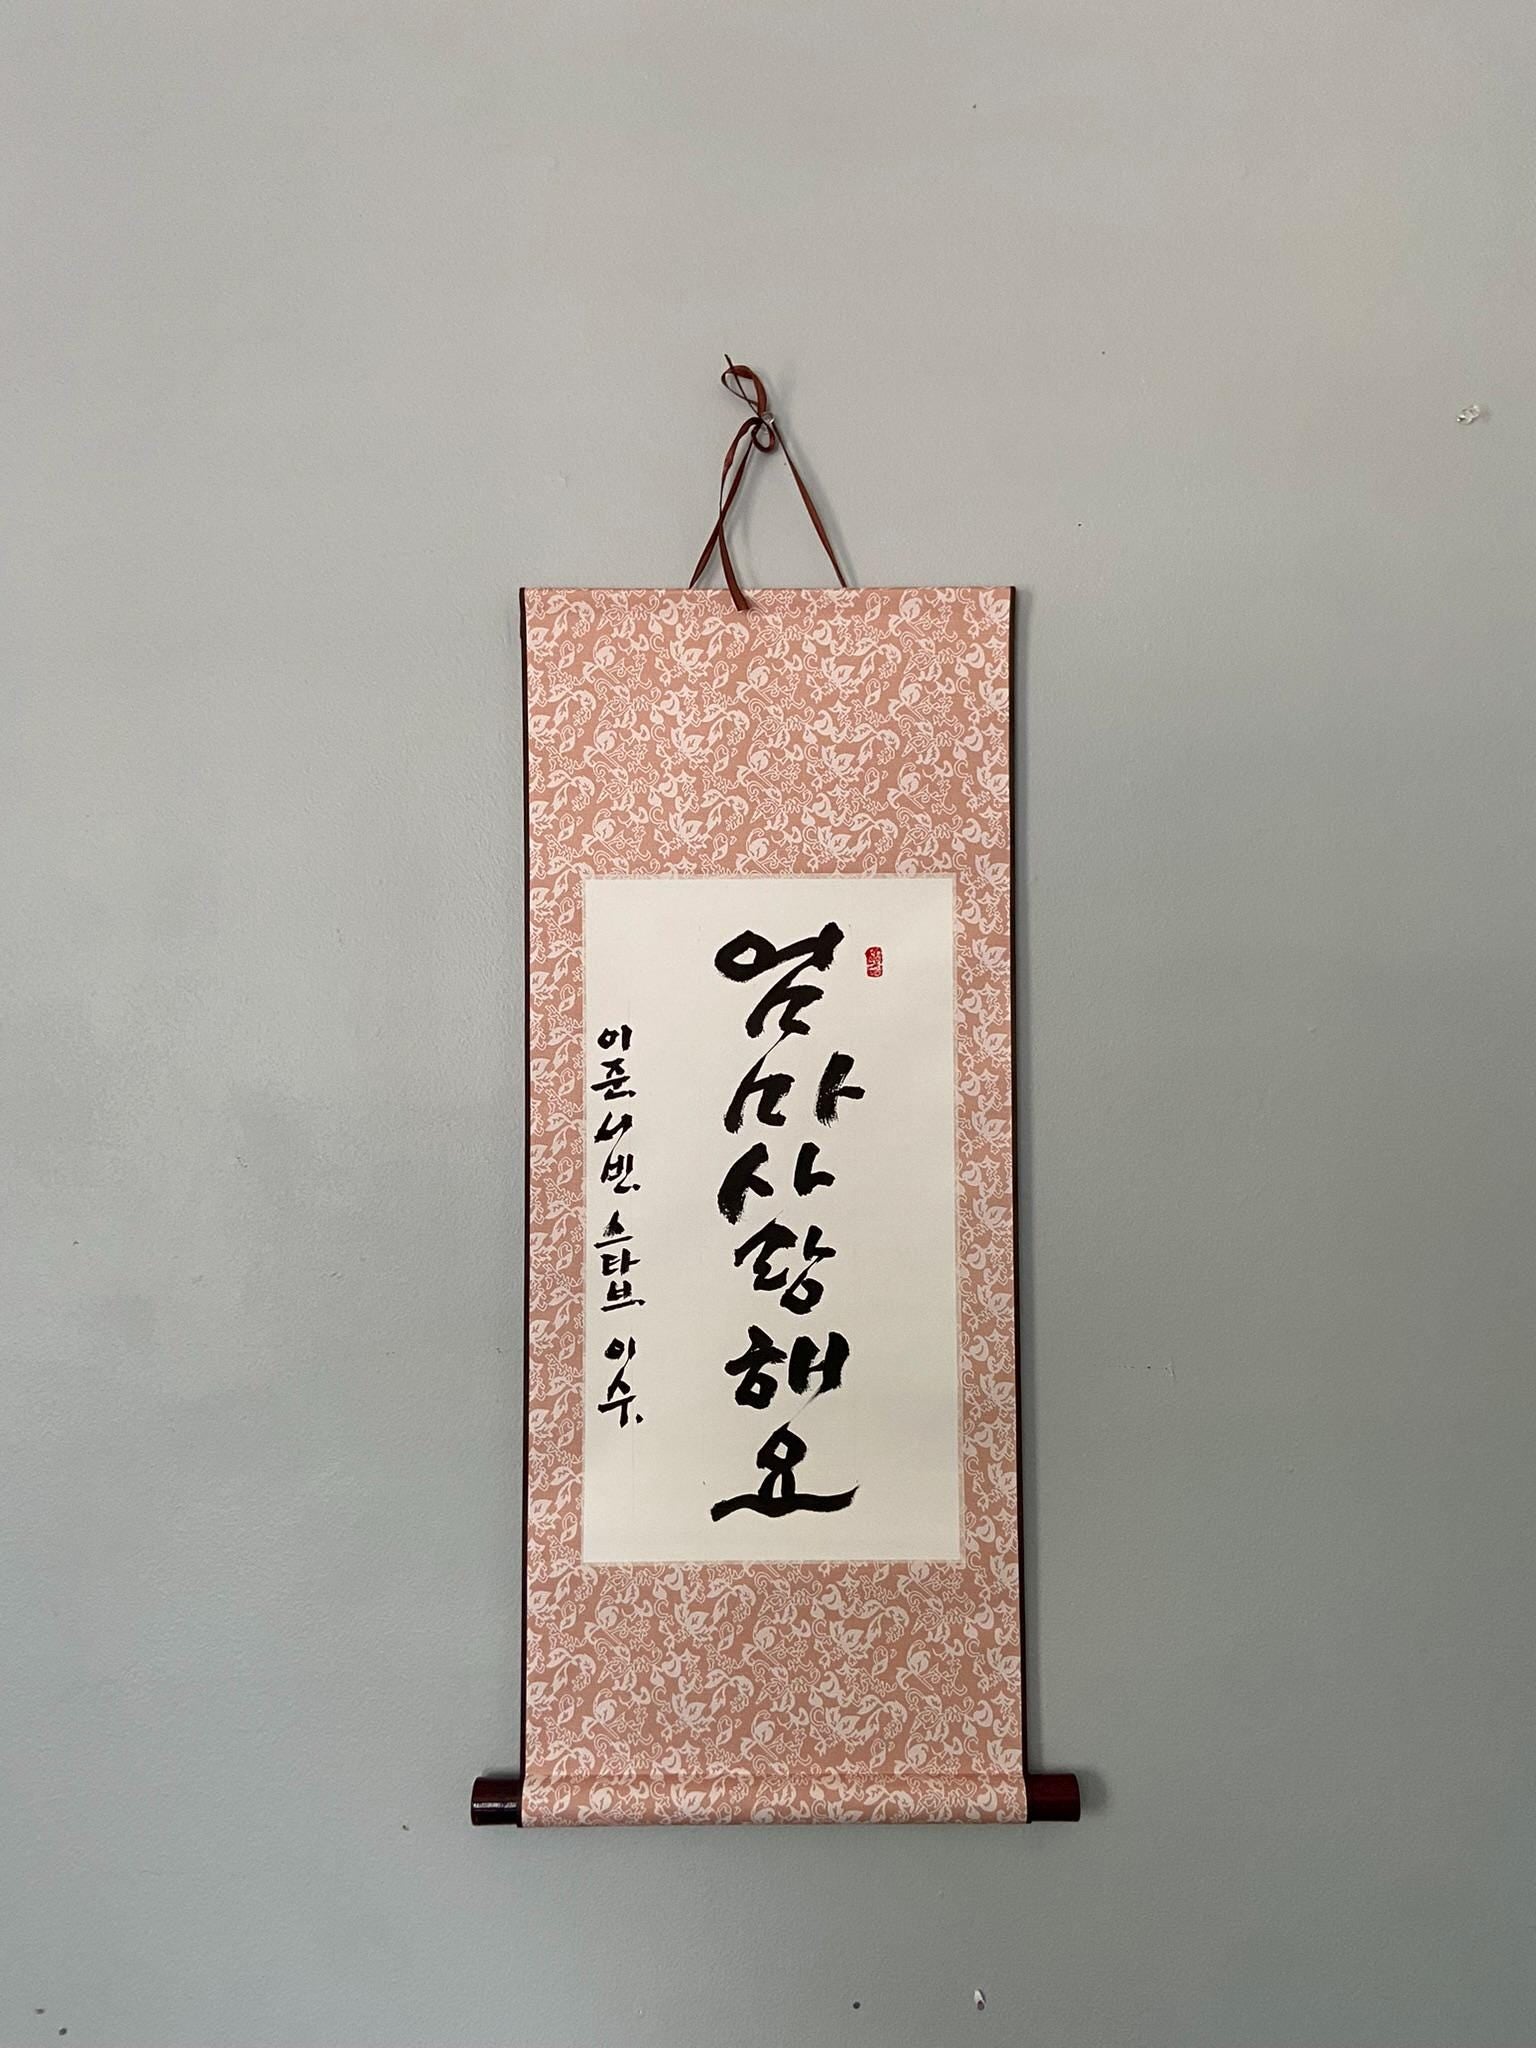 엄마사랑해요
이준, 서빈, 스타브, 이수.